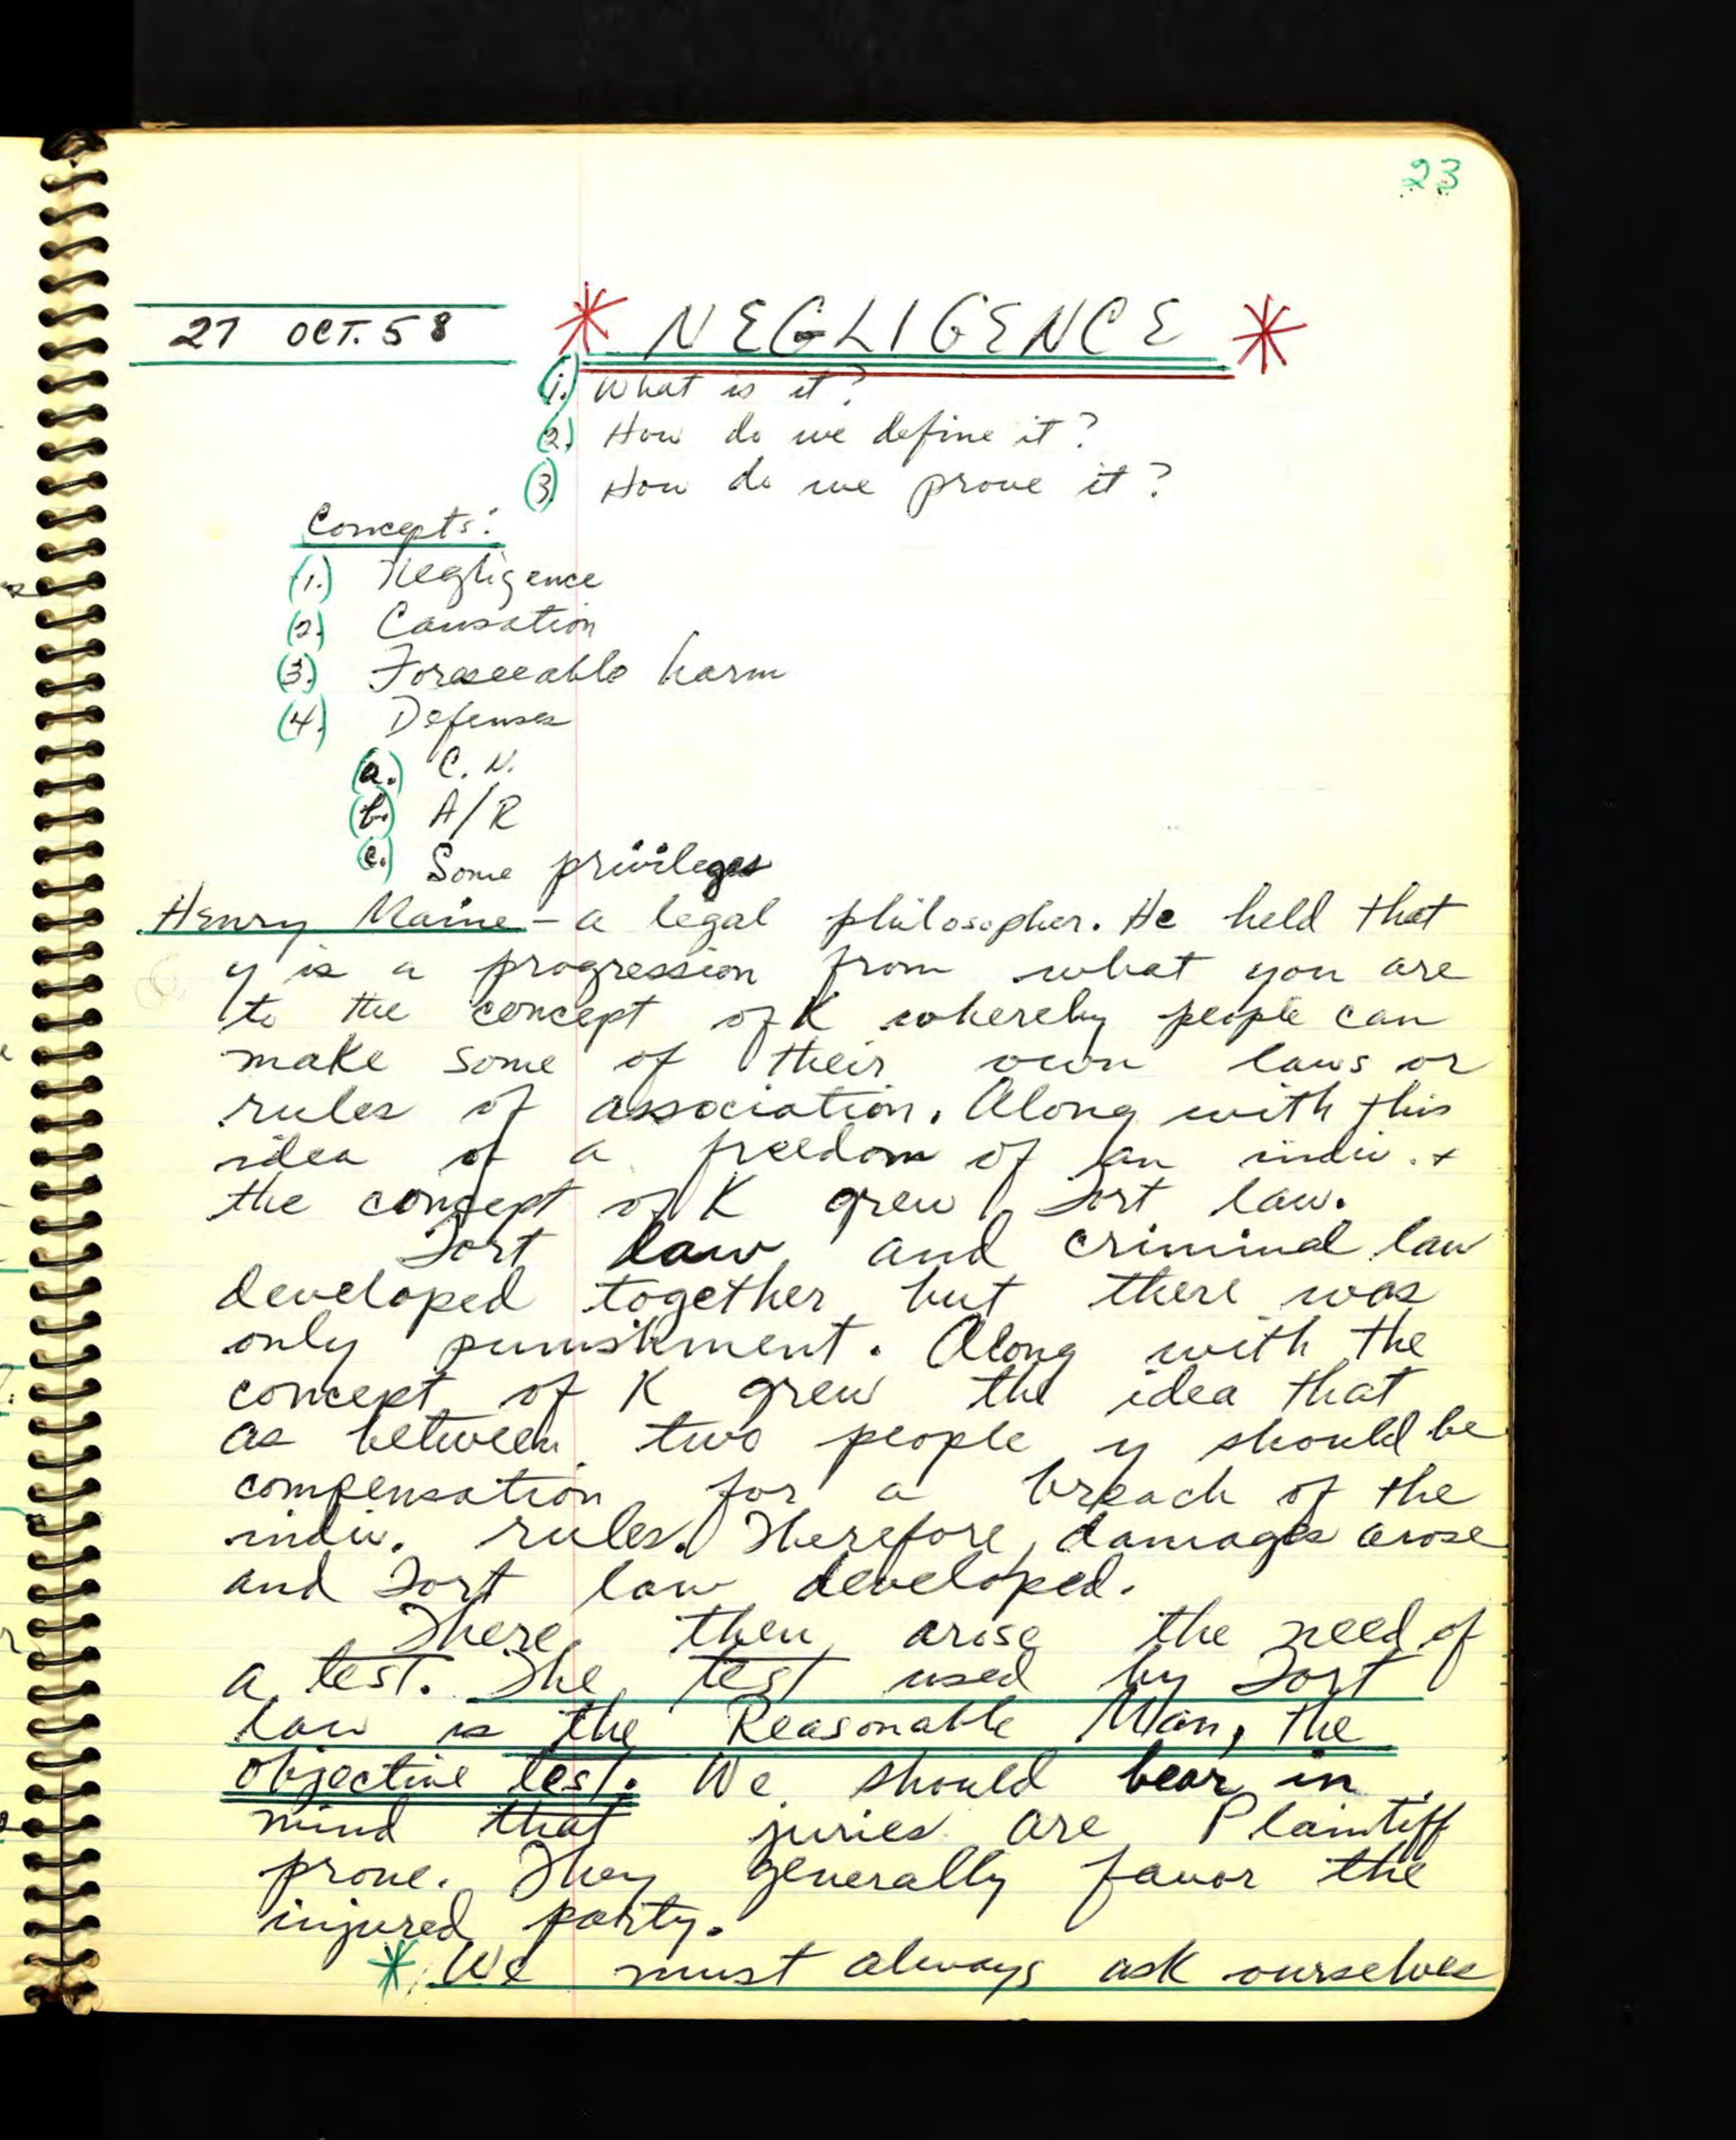 23
27 OCT. 58
* NEGLIGENCE *
(1.) What is it?
(2.) How do we define it?
(3) How do we prove it?
Concepts:
(1.) Negligence
(2) Causation
(3.) Foreseeable harm
(4.) Defenses
(a.) C.N.
(b.) A/R
(c.) Some privileges
Henry Maine - a legal philosopher. He held that
y is a progression from what you are
to the concept of K whereby people can
make some of their own laws or
rules of association. Along with this
idea of a freedom of an indiv. +
the concept of K grew Tort law.
Tort law and criminal law
developed together but there was
only punishment. Along with the
concept of K grew the idea that
as between two people y should be
compensation for a breach of the
indiv. rules. Therefore, damages arose
and Tort law developed.
There, then, arose the need of
a test. The test used by Tort
law is the Reasonable Man, the
objective test. We should bear in
mind that juries are Plaintiff
prone. They generally favor the
injured party.
* We must always ask ourselves